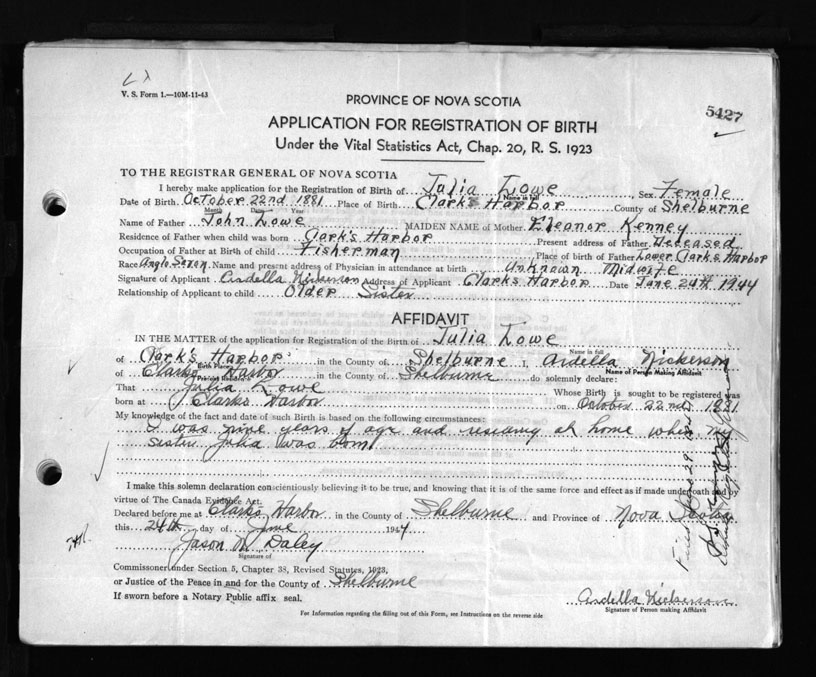 V. S. Form 1.—10M-11-43
5427
PROVINCE OF NOVA SCOTIA
APPLICATION FOR REGISTRATION OF BIRTH
Under the Vital Statistics Act, Chap. 20, R. S. 1923
TO THE REGISTRAR GENERAL OF NOVA SCOTIA
I hereby make application for the Registration of Birth of Julia Lowe Sex Female
Name in full
Date of Birth October 22nd 1881 Place of Birth Clark's Harbor County of Shelburne
Month Date Year
Name of Father John Lowe MAIDEN NAME of Mother Eleanor Kenney
Residence of Father when child was born Clark's Harbor Present address of Father Deceased
Occupation of Father at Birth of child Fisherman Place of birth of Father Lower Clark's Harbor
Race Anglo Saxon Name and present address of Physician in attendance at birth Unknown Midwife
Signature of Applicant Ardella Nickerson Address of Applicant Clark's Harbor Date June 24th 1944
Relationship of Applicant to child Older Sister
AFFIDAVIT
IN THE MATTER of the application for Registration of the Birth of Julia Lowe
Name in full
of Clark's Harbor in the County of Shelburne I, Ardella Nickerson
Birth Place Name of Person Making Affidavit
of Clarks Harbor in the County of Shelburne do solemnly declare:
Present Residence
That Julia Lowe Whose Birth is sought to be registered was
born at Clarks Harbor on October 22nd 1881
My knowledge of the fact and date of such Birth is based on the following circumstances:
I was nine years of age and residing at home when my
sister Julia was born
I make this solemn declaration conscientiously believing it to be true, and knowing that it is of the same force and effect as if made under oath and by
virtue of The Canada Evidence Act.
Declared before me at Clarks Harbor in the County of Shelburne and Province of Nova Scotia
this 24th day of June 1944
Jason M. Daley
Signature of
Commissioner under Section 5, Chapter 38, Revised Statutes, 1923,
or Justice of the Peace in and for the County of Shelburne
If sworn before a Notary Public affix seal.
Ardella Nickerson
Signature of Person making Affidavit
For Information regarding the filling out of this Form, see Instructions on the reverse side